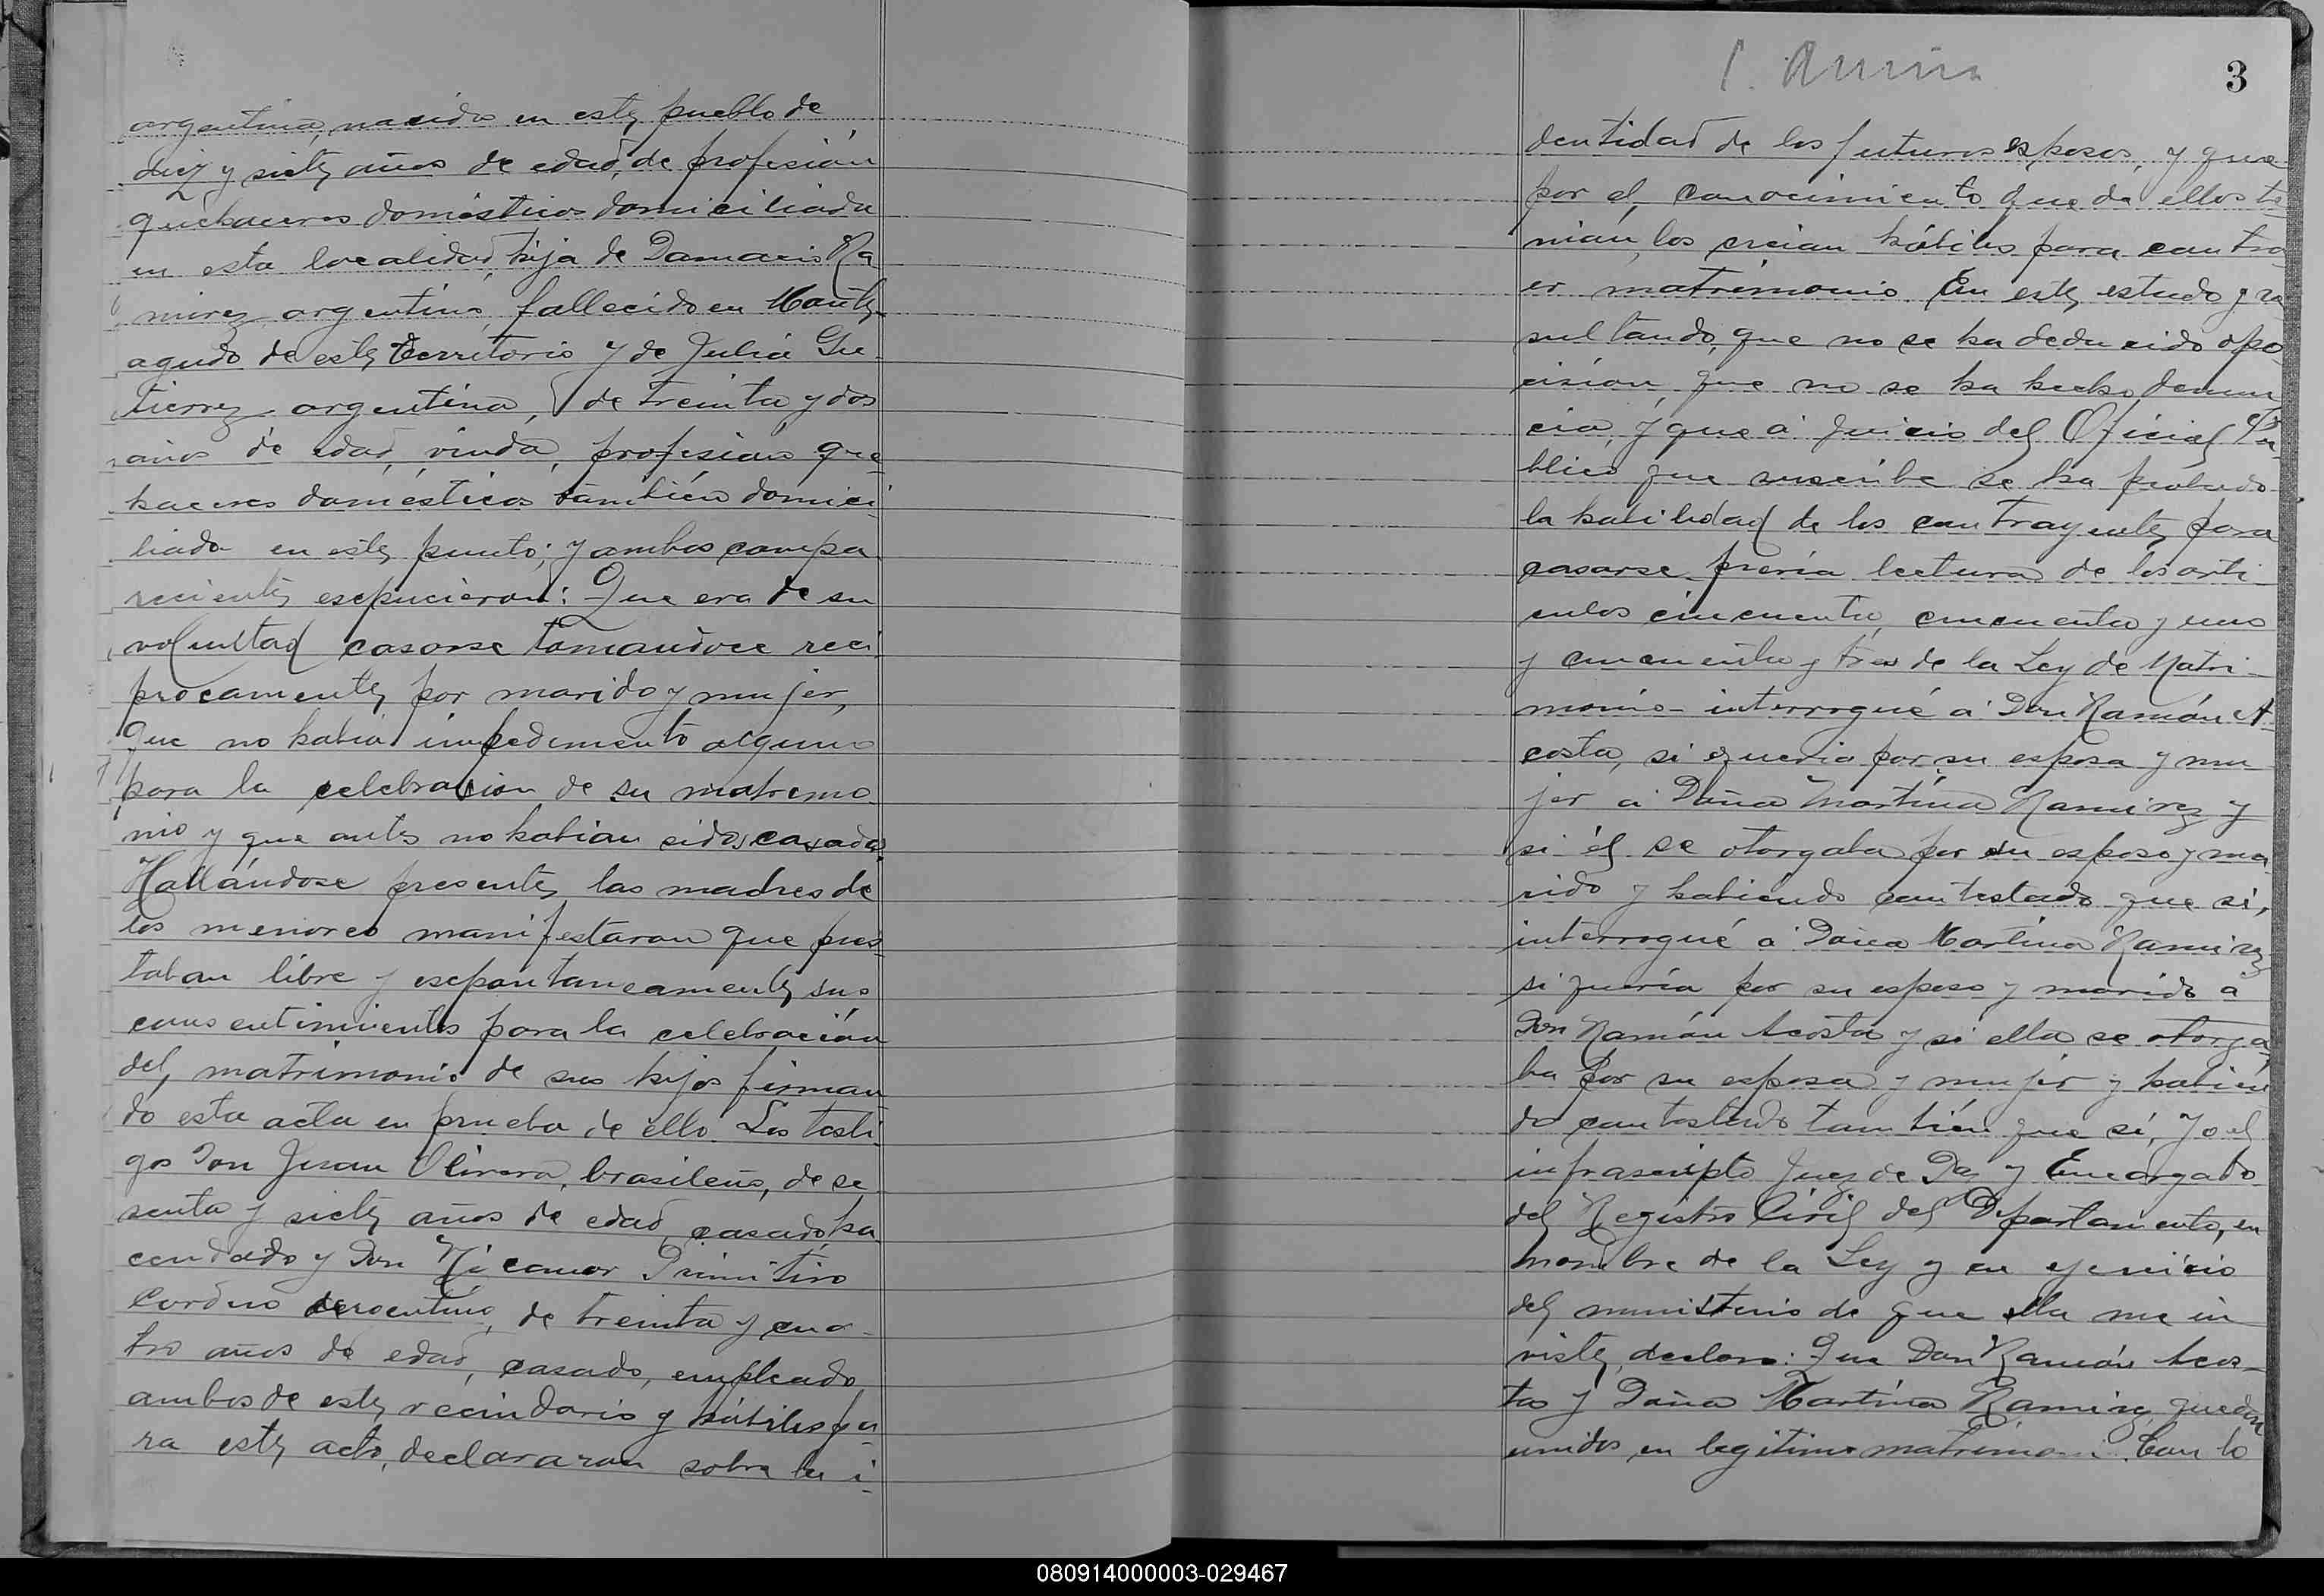 argentina, nacida en este pueblo de
diez y siete años de edad, de profesión
quehaceres domésticos domiciliada
en esta localidad, hija de Damacio Ra
mirez argentino, fallecido en Monte
agudo de este territorio y de Julia Gu
tierrez argentina, de treinta y dos
años de edad, viuda, profesion que
haceres domésticos también domici
liada en este punto; y ambos compa
recientes esepucieron: Que era de su
voluntad casarse tomandoce reci
procamente por marido y mujer,
que no habia impedimento alguno
para la celebracion de su matrimo
nio y que antes no habian sidos casados.
Hallándose presente las madres de
los menores manifestaron que pres
taban libre y esepontaneamente sus
consentimientos para la celebración
del matrimonio de sus hijos firman
do esta acta en prueba de ello. Los testi
gos Don Juan Olivera, brasileño, de se
senta y siete años de edad, casado, ha
cendado y Don Nicanor Primitivo
Cordero argentino, de treinta y cua
tro años de edad, casado, empleado
ambos de este vecindario y hábiles pa
ra este acto, declararon sobre la i-
3
dentidad de los futuros esposos, y que
por el conocimiento que de ellos te
nian, los creian hábiles para contra
er matrimonio. En este estado y re
sultando, que no se ha deducido opo
cision, que no se ha hecho denun
cia, y que á juicio del Oficial Pú
blico que suscribe se ha probado
la habilidad de los contrayentes para
casarse, previa lectura de los arti
culos cincuenta, cincuenta y uno
y cincuenta y tres de la Ley de Matri-
monio - interrogué á Don Ramón A-
costa, si queria por su esposa y mu
jer á Doña Martina Ramirez y
si él se otorgaba por su esposo y ma
rido y habiendo contestado que si,
interrogué á Doña Martina Ramirez
si queria por su esposo y marido á
Don Ramón Acosta y si ella se otorga
ba por su esposa y mujer y habien
do contestado también que si, Yo el
infrascripto Juez de Paz y Encargado
del Registro Civil del Departamento, en
nombre de la Ley y en ejercicio
del ministerio de que ella me in
viste, declaro: Que Don Ramón Acos-
ta y Doña Martina Ramirez, quedan
unidos en legitimo matrimonio. Con lo
080914000003-029467